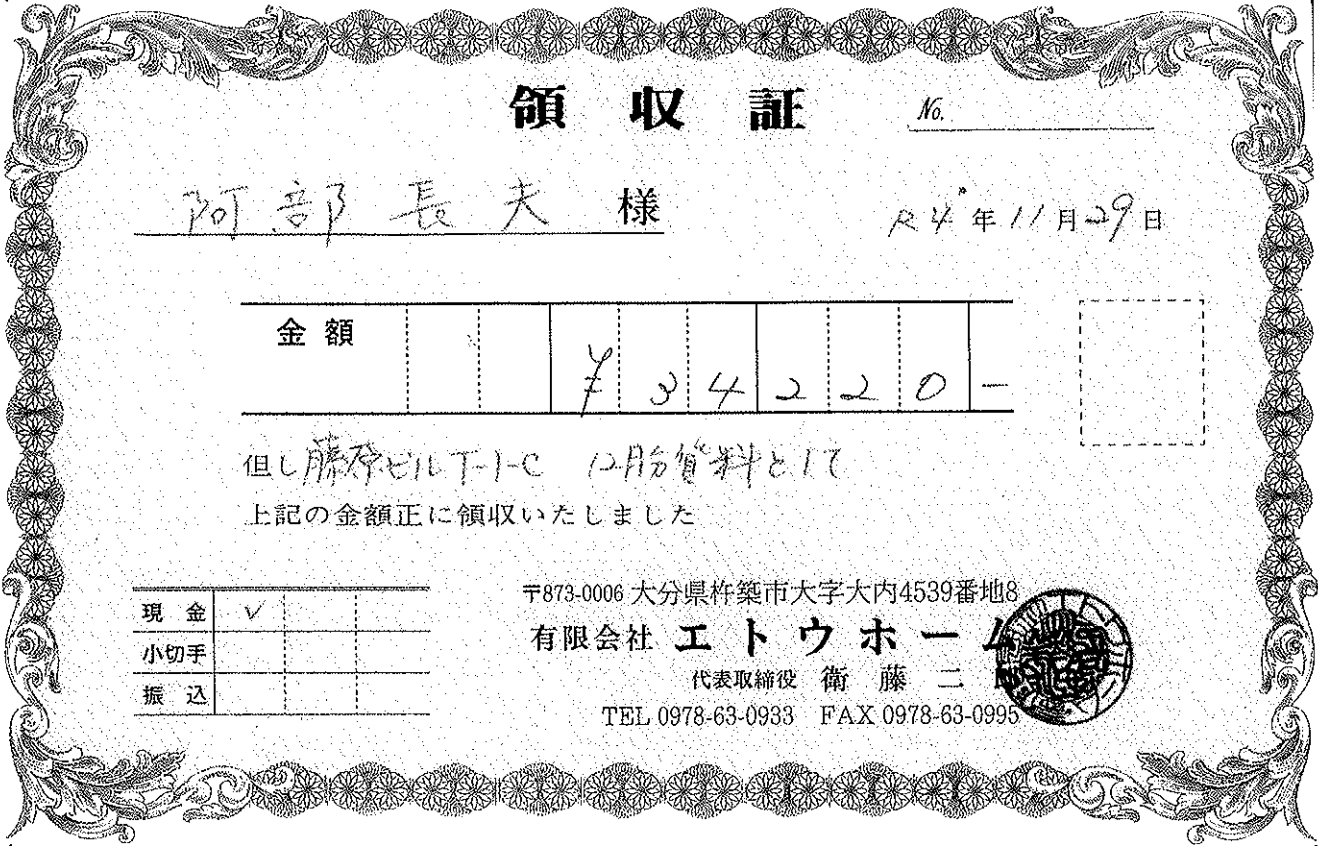 領収証 No.
阿部長夫 様 R4年11月29日
金額 ¥34220-
但し藤原ビルT-1-C 12月分賃料として
上記の金額正に領収いたしました
現金 ✓
小切手
振込
〒873-0006 大分県杵築市大字大内4539番地8
有限会社 エトウホーム
代表取締役 衛藤二
TEL 0978-63-0933 FAX 0978-63-0995